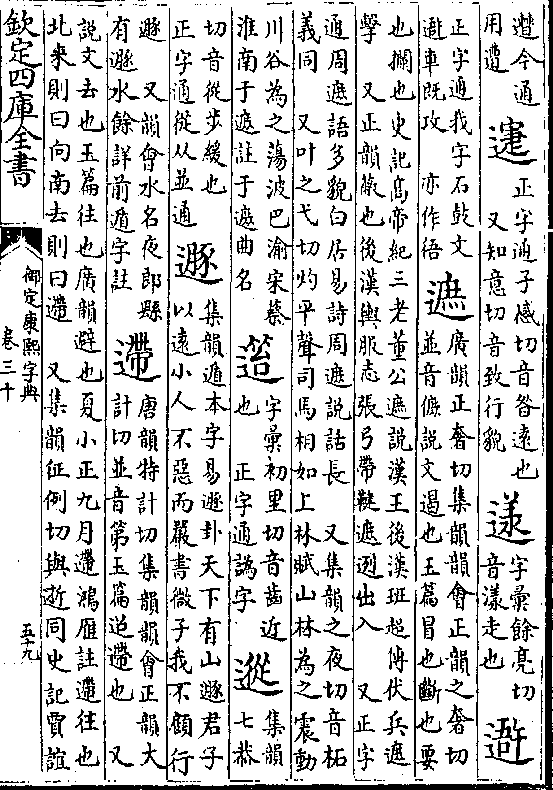 遭今通用遭 𨖷 正字通子感切音昝遠也又知意切音致行貌 𨖹 字彙餘亮切音漾走也 𨖴
正字通我字石鼓文𨖴車旣攻 亦作䢩 遮 廣韻正奢切集韻韻會正韻之奢切並音㒤說文遏也玉篇冒也斷也要
也攔也史記高帝紀三老董公遮說漢王後漢班超傳伏兵遮
擊 又正韻蔽也後漢輿服志張弓帶鞬遮迾出入 又正字
通周遮語多貌白居易詩周遮說話長 又集韻之夜切音柘
義同 又叶之弋切灼平聲司馬相如上林賦山林為之震動
川谷為之蕩波巴渝宋蔡淮南于遮註于遮曲名 𨗁 字彙初里切音齒近也 正字通譌字 䢨 集韻七恭
切音從步緩也正字通從从並通 遯 集韻遁本字易遯卦天下有山遯君子以遠小人不惡而嚴書微子我不顧行
遯 又韻會水名夜郎縣有遯水餘詳前遁字註 遰 唐韻特計切集韻韻會正韻大計切並音第玉篇迢遰也 又
說文去也玉篇往也廣韻避也夏小正九月遰鴻雁註遰往也
北來則曰向南去則曰遰 又集韻征例切與逝同史記賈誼
欽定四庫全書
御定康熙字典
卷三十
五十九